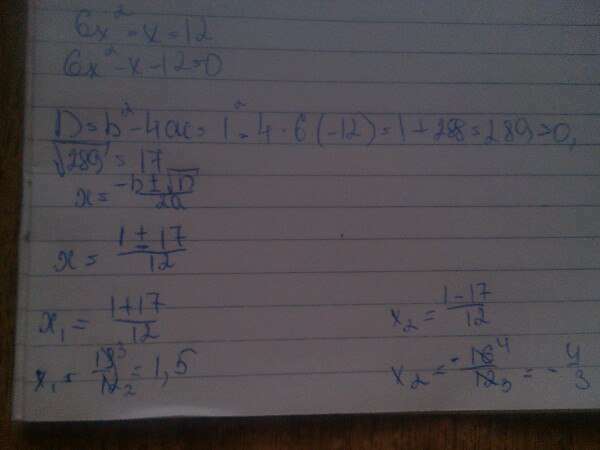 6x² - x = 12
6x² - x - 12 = 0
D = b² - 4ac = 1² - 4 · 6 (-12) = 1 + 288 = 289 > 0,
√289 = 17
x = -b ± √D / 2a
x = 1 ± 17 / 12
x₁ = 1 + 17 / 12
x₂ = 1 - 17 / 12
x₁ = 18³ / 12₂ = 1,5
x₂ = -16⁴ / 12₃ = - 4/3